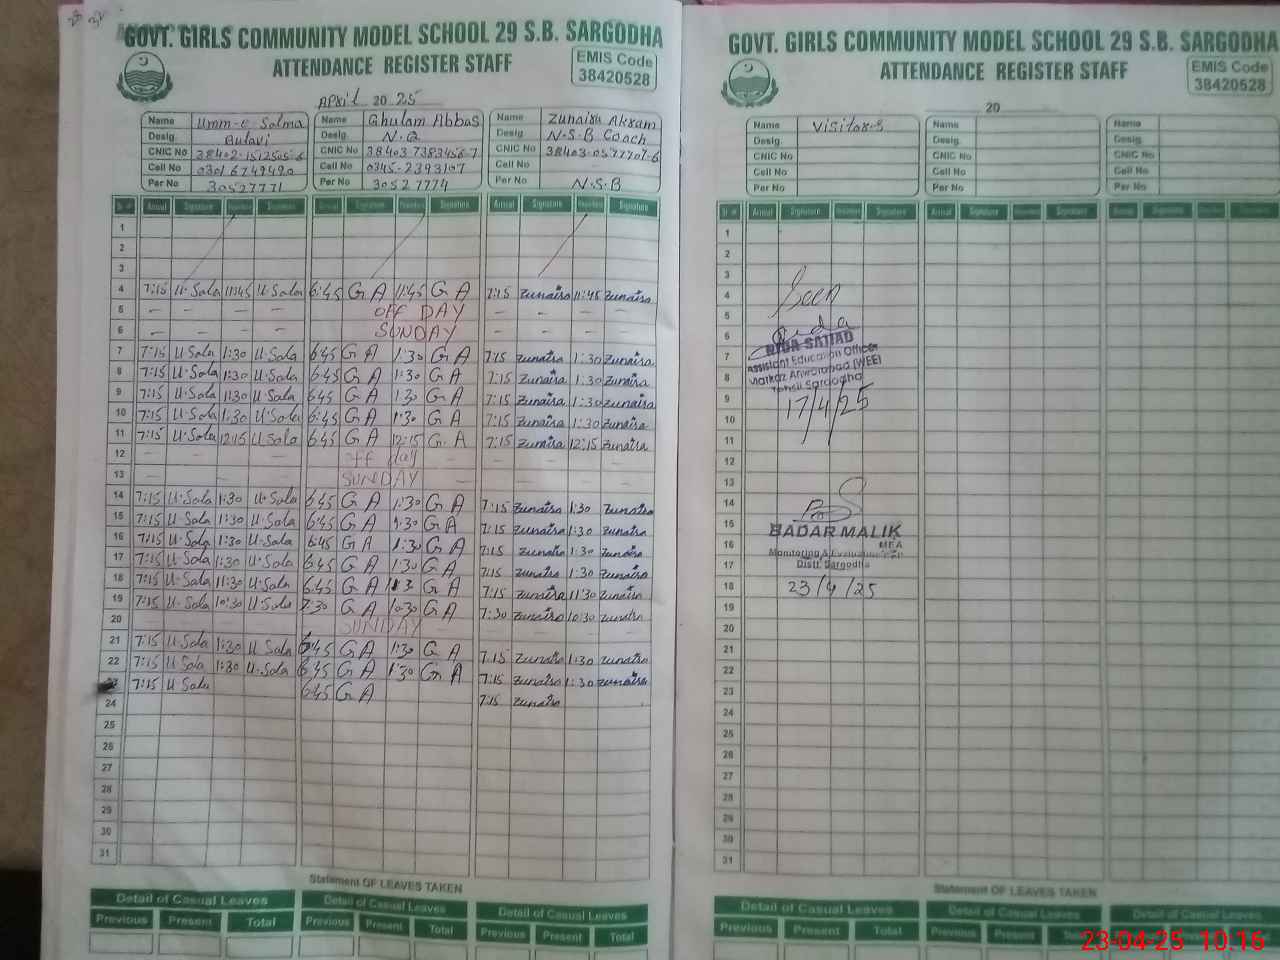 GOVT. GIRLS COMMUNITY MODEL SCHOOL 29 S.B. SARGODHA
ATTENDANCE REGISTER STAFF
EMIS Code
38420528
April 2025
Name Umm-e-Salma Name Ghulam Abbas Name Zunaira Akram
Desig. Butavi Desig. N.Q Desig. N.S.B Coach
CNIC No CNIC No 38403-7383456-7 CNIC No 38403-0577707-6
Cell No 03016749490 Cell No 0345-2393107 Cell No
Per No 30527771 Per No 30527774 Per No N.S.B
Sr. # Arrival Signature Departure Signature Arrival Signature Departure Signature Arrival Signature Departure Signature
1
2
3
4 7:15 U-Sala 11:45 U-Sala 6:45 G A 11:45 G A 7:15 Zunaira 11:45 Zunaira
5 - - - - OFF DAY - - - -
6 - - - - SUNDAY - - - -
7 7:15 U-Sala 1:30 U-Sala 6:45 G A 1:30 G A 7:15 Zunaira 1:30 Zunaira
8 7:15 U-Sala 1:30 U-Sala 6:45 G A 1:30 G A 7:15 Zunaira 1:30 Zunaira
9 7:15 U-Sala 1:30 U-Sala 6:45 G A 1:30 G A 7:15 Zunaira 1:30 Zunaira
10 7:15 U-Sala 1:30 U-Sala 6:45 G A 1:30 G A 7:15 Zunaira 1:30 Zunaira
11 7:15 U-Sala 12:15 U-Sala 6:45 G A 12:15 G.A 7:15 Zunaira 12:15 Zunaira
12 - - - - off day - - - -
13 - - - - SUNDAY - - - -
14 7:15 U-Sala 1:30 U-Sala 6:45 G A 1:30 G A 7:15 Zunaira 1:30 Zunaira
15 7:15 U-Sala 1:30 U-Sala 6:45 G A 1:30 G A 7:15 Zunaira 1:30 Zunaira
16 7:15 U-Sala 1:30 U-Sala 6:45 G A 1:30 G A 7:15 Zunaira 1:30 Zunaira
17 7:15 U-Sala 1:30 U-Sala 6:45 G A 1:30 G A 7:15 Zunaira 1:30 Zunaira
18 7:15 U-Sala 11:30 U-Sala 6:45 G A G A 7:15 Zunaira 11:30 Zunaira
19 7:15 U-Sala 10:30 U-Sala 7:30 G A 10:30 G A 7:30 Zunaira 10:30 Zunaira
20 - - - - SUNDAY - - - -
21 7:15 U-Sala 1:30 U-Sala 6:45 G A 1:30 G A 7:15 Zunaira 1:30 Zunaira
22 7:15 U-Sala 1:30 U-Sala 6:45 G A 1:30 G A 7:15 Zunaira 1:30 Zunaira
23 7:15 U-Sala 6:45 G A 7:15 Zunaira
24
25
26
27
28
29
30
31
Statement OF LEAVES TAKEN
Detail of Casual Leaves Detail of Casual Leaves Detail of Casual Leaves
Previous Present Total Previous Present Total Previous Present Total
GOVT. GIRLS COMMUNITY MODEL SCHOOL 29 S.B. SARGODHA
ATTENDANCE REGISTER STAFF
EMIS Code
38420528
20
Name Visitors Name Name
Desig. Desig. Desig.
CNIC No CNIC No CNIC No
Cell No Cell No Cell No
Per No Per No Per No
Sr. # Arrival Signature Departure Signature Arrival Signature Departure Signature Arrival Signature Departure Signature
1
2
3
4 Seen
5
6
7 RIDA SAJJAD
Assistant Education Officer
8 Markaz Anwarabad (WEE)
Tehsil Sargodha
9 17/4/25
10
11
12
13
14
15 BADAR MALIK
16 MEA
Monitoring & Evaluation
17 Distt. Sargodha
18 23/4/25
19
20
21
22
23
24
25
26
27
28
29
30
31
Statement OF LEAVES TAKEN
Detail of Casual Leaves Detail of Casual Leaves Detail of Casual Leaves
Previous Present Total Previous Present Previous
23-04-25 10:16